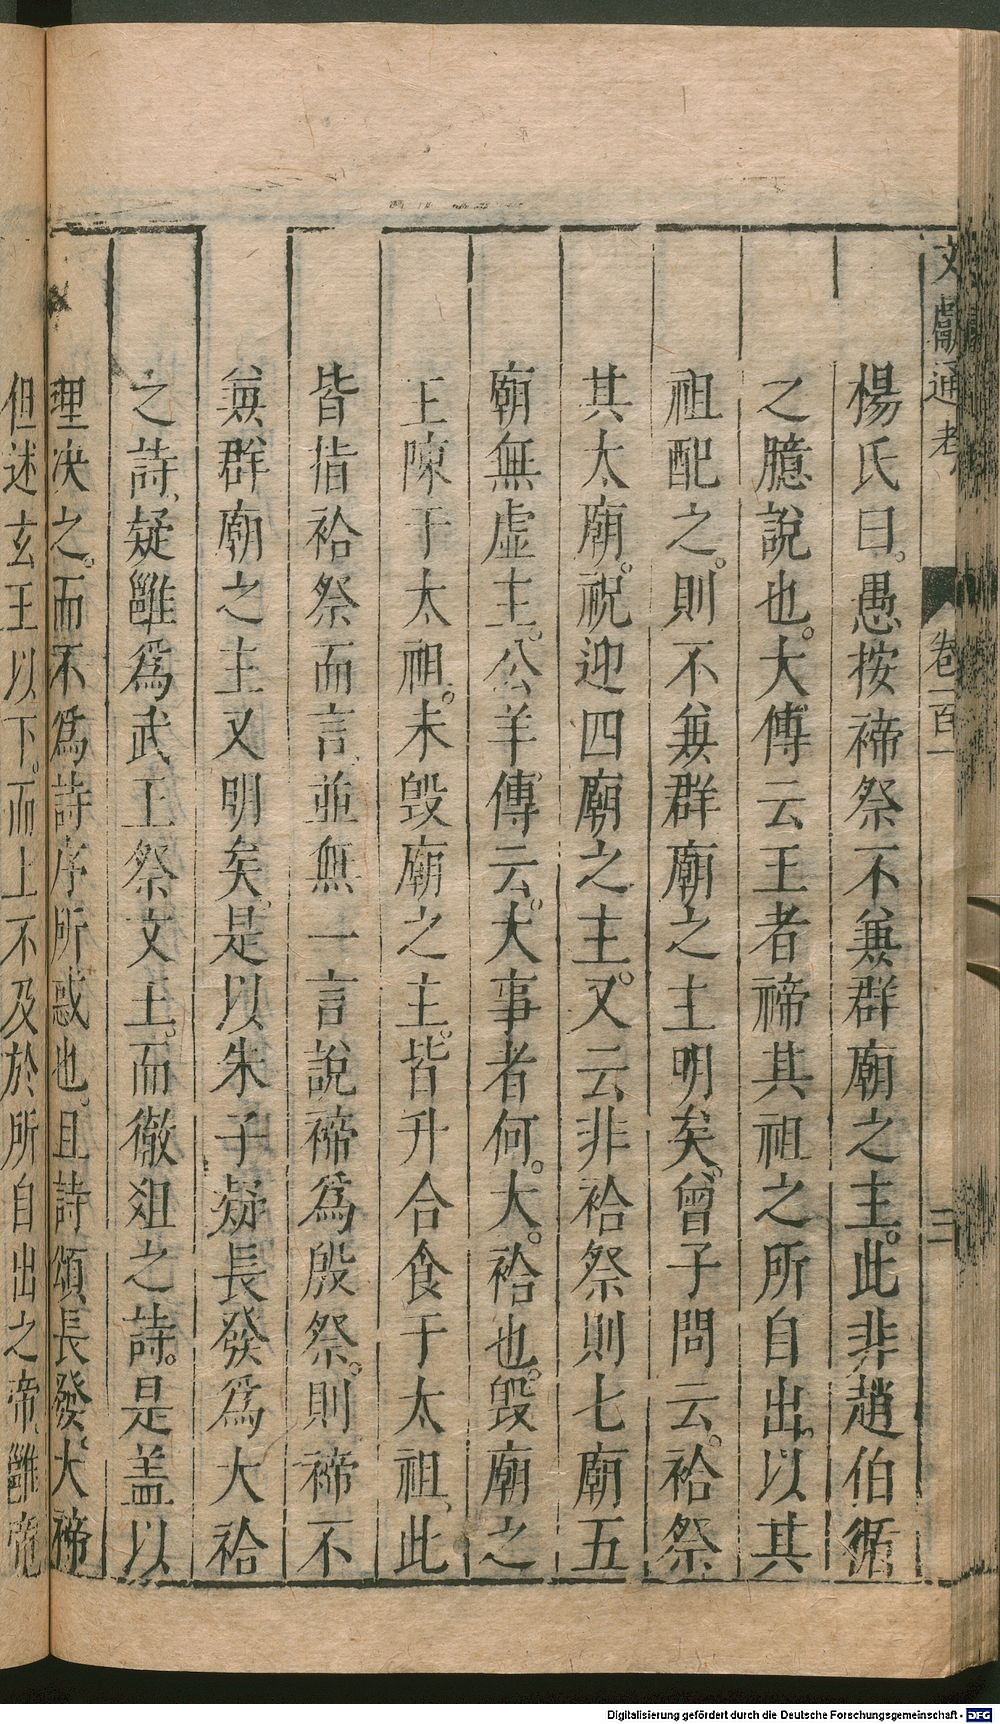 文獻通考 卷一百一 三
楊氏曰。愚按禘祭不兼群廟之主。此非趙伯循
之臆說也。大傳云王者禘其祖之所自出。以其
祖配之。則不兼群廟之主明矣。曾子問云。祫祭
其太廟。祝迎四廟之主。又云非祫祭則七廟五
廟無虛主。公羊傳云。大事者何。大祫也。毀廟之
主陳于太祖。未毀廟之主。皆升合食于太祖。此
皆指祫祭而言並無一言說禘爲殷祭。則禘不
兼群廟之主又明矣。是以朱子疑長發爲大祫
之詩疑雝爲武王祭文王。而徹俎之詩。是盖以
理决之。而不爲詩序所惑也。且詩頌長發大禘
但述玄王以下。而上不及於所自出之帝雝
Digitalisierung gefördert durch die Deutsche Forschungsgemeinschaft - DFG